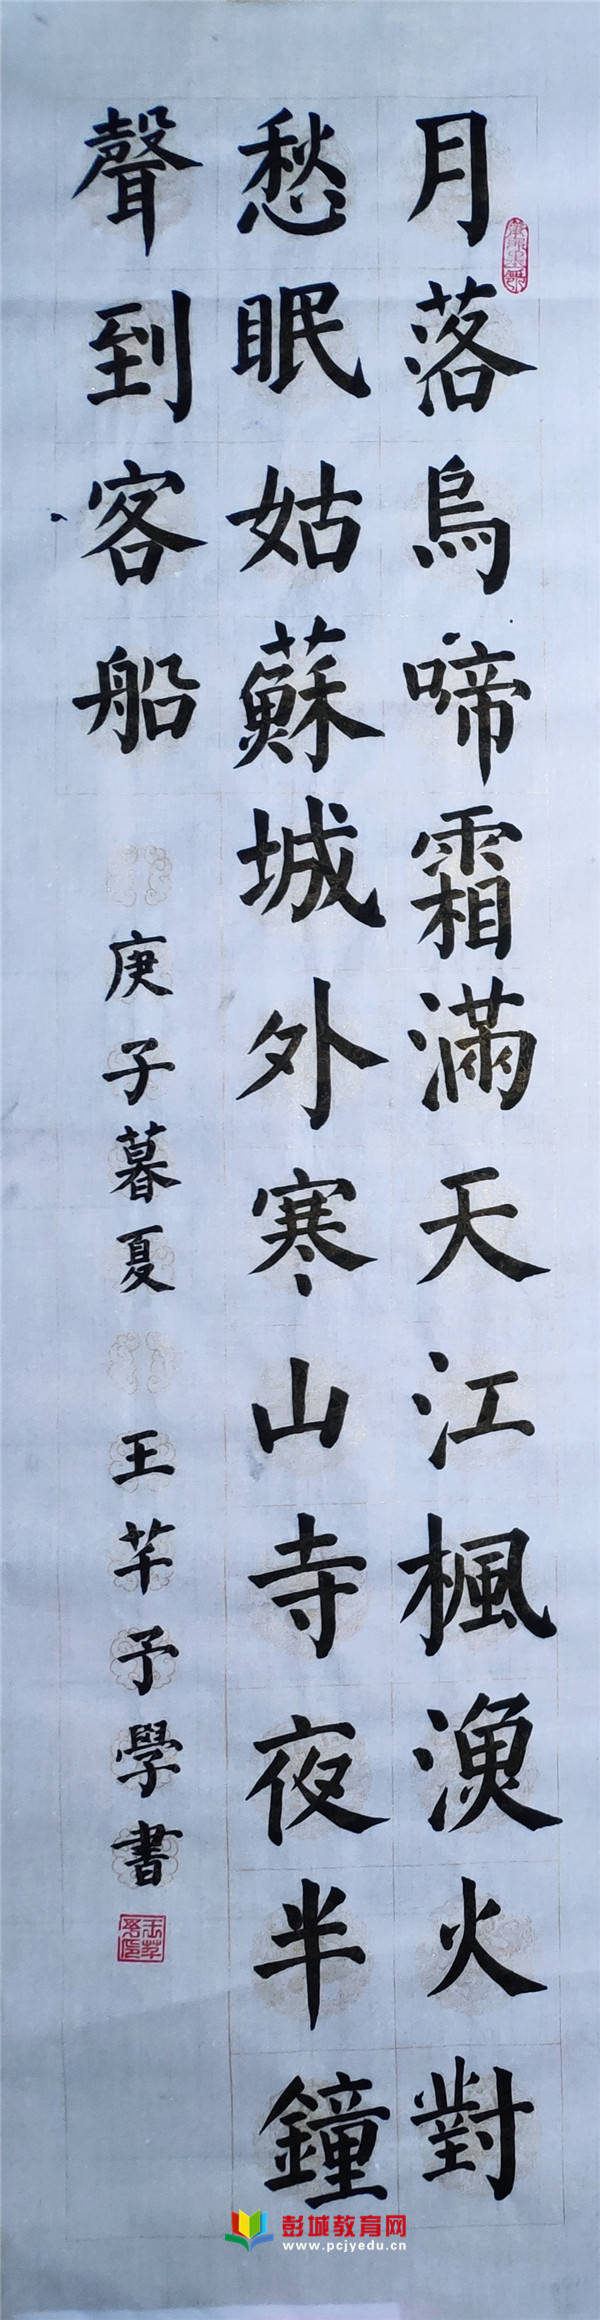 月落烏啼霜滿天江楓漁火對
愁眠姑蘇城外寒山寺夜半鐘
聲到客船
庚子暮夏 王芊予學書
彭城教育网
www.pcjyedu.cn